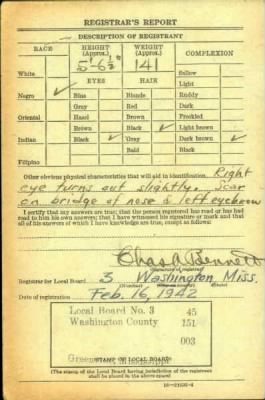 REGISTRAR'S REPORT
DESCRIPTION OF REGISTRANT
RACE
HEIGHT (Approx.)
WEIGHT (Approx.)
COMPLEXION
5'-6½"
141
White
EYES
HAIR
Sallow
Light
Negro ✓
Blue
Blonde
Ruddy
Gray
Red
Dark
Oriental
Hazel
Brown
Freckled
Brown
Black ✓
Light brown
Indian
Black ✓
Gray
Dark brown ✓
Bald
Black
Filipino
Other obvious physical characteristics that will aid in identification. Right
eye turns out slightly. Scar
on bridge of nose & left eyebrow
I certify that my answers are true; that the person registered has read or has had
read to him his own answers; that I have witnessed his signature or mark and that
all of his answers of which I have knowledge are true, except as follows:
Chas A Bennett
(Signature of registrar)
Registrar for Local Board 3 Washington Miss.
Date of registration Feb. 16, 1942
Local Board No. 3 45
Washington County 151
003
STAMP OF LOCAL BOARD
(The stamp of the Local Board having jurisdiction of the registrant
shall be placed in the above space)